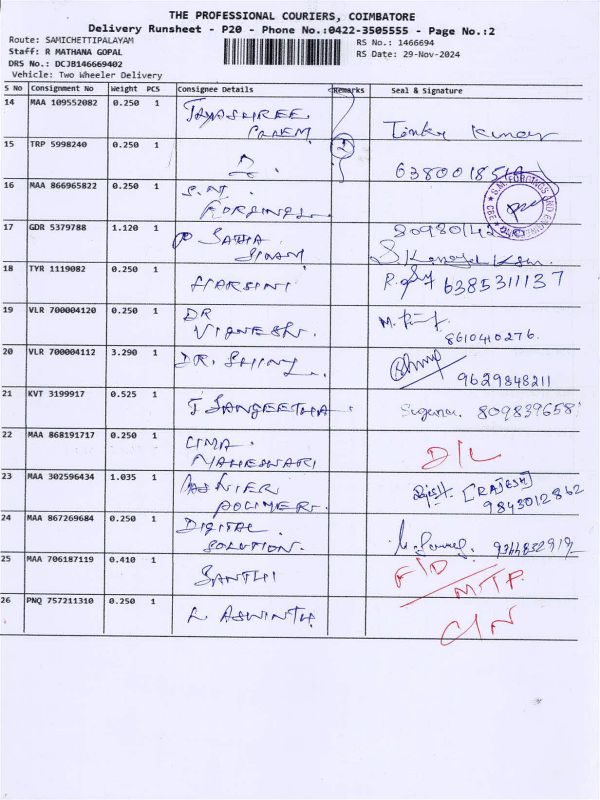 THE PROFESSIONAL COURIERS, COIMBATORE
Delivery Runsheet - P20 - Phone No.:0422-3505555 - Page No.:2
Route: SAMICHETTIPALAYAM
RS No.: 1466694
Staff: R MATHANA GOPAL
RS Date: 29-Nov-2024
DRS No.: DCJB146669402
Vehicle: Two Wheeler Delivery
S No Consignment No Weight PCS Consignee Details Remarks Seal & Signature
14 MAA 109552082 0.250 1 JAYASHREE
Kumar
15 TRP 5998240 0.250 1 2
16 MAA 866965822 0.250 1 S.M.
FORGINGS
17 GDR 5379788 1.120 1 SATHIA
18 TYR 1119082 0.250 1 HARSINI 6385311137
19 VLR 700004120 0.250 1 DR
VIGNESH. 8610410276.
20 VLR 700004112 3.290 1 DR. SHINY
9629848211
21 KVT 3199917 0.525 1 T SANGEETHA. Sugana. 809839658
22 MAA 868191717 0.250 1 UMA
MAHESWARI D/L
23 MAA 302596434 1.035 1 [RAJESH]
POLYMER. 9843012862
24 MAA 867269684 0.250 1 DIGITAL
SOLUTION. 9344832919
25 MAA 706187119 0.410 1 SANTHI F/D
M.T.P.
26 PNQ 757211310 0.250 1 R ASWINTH. C/N